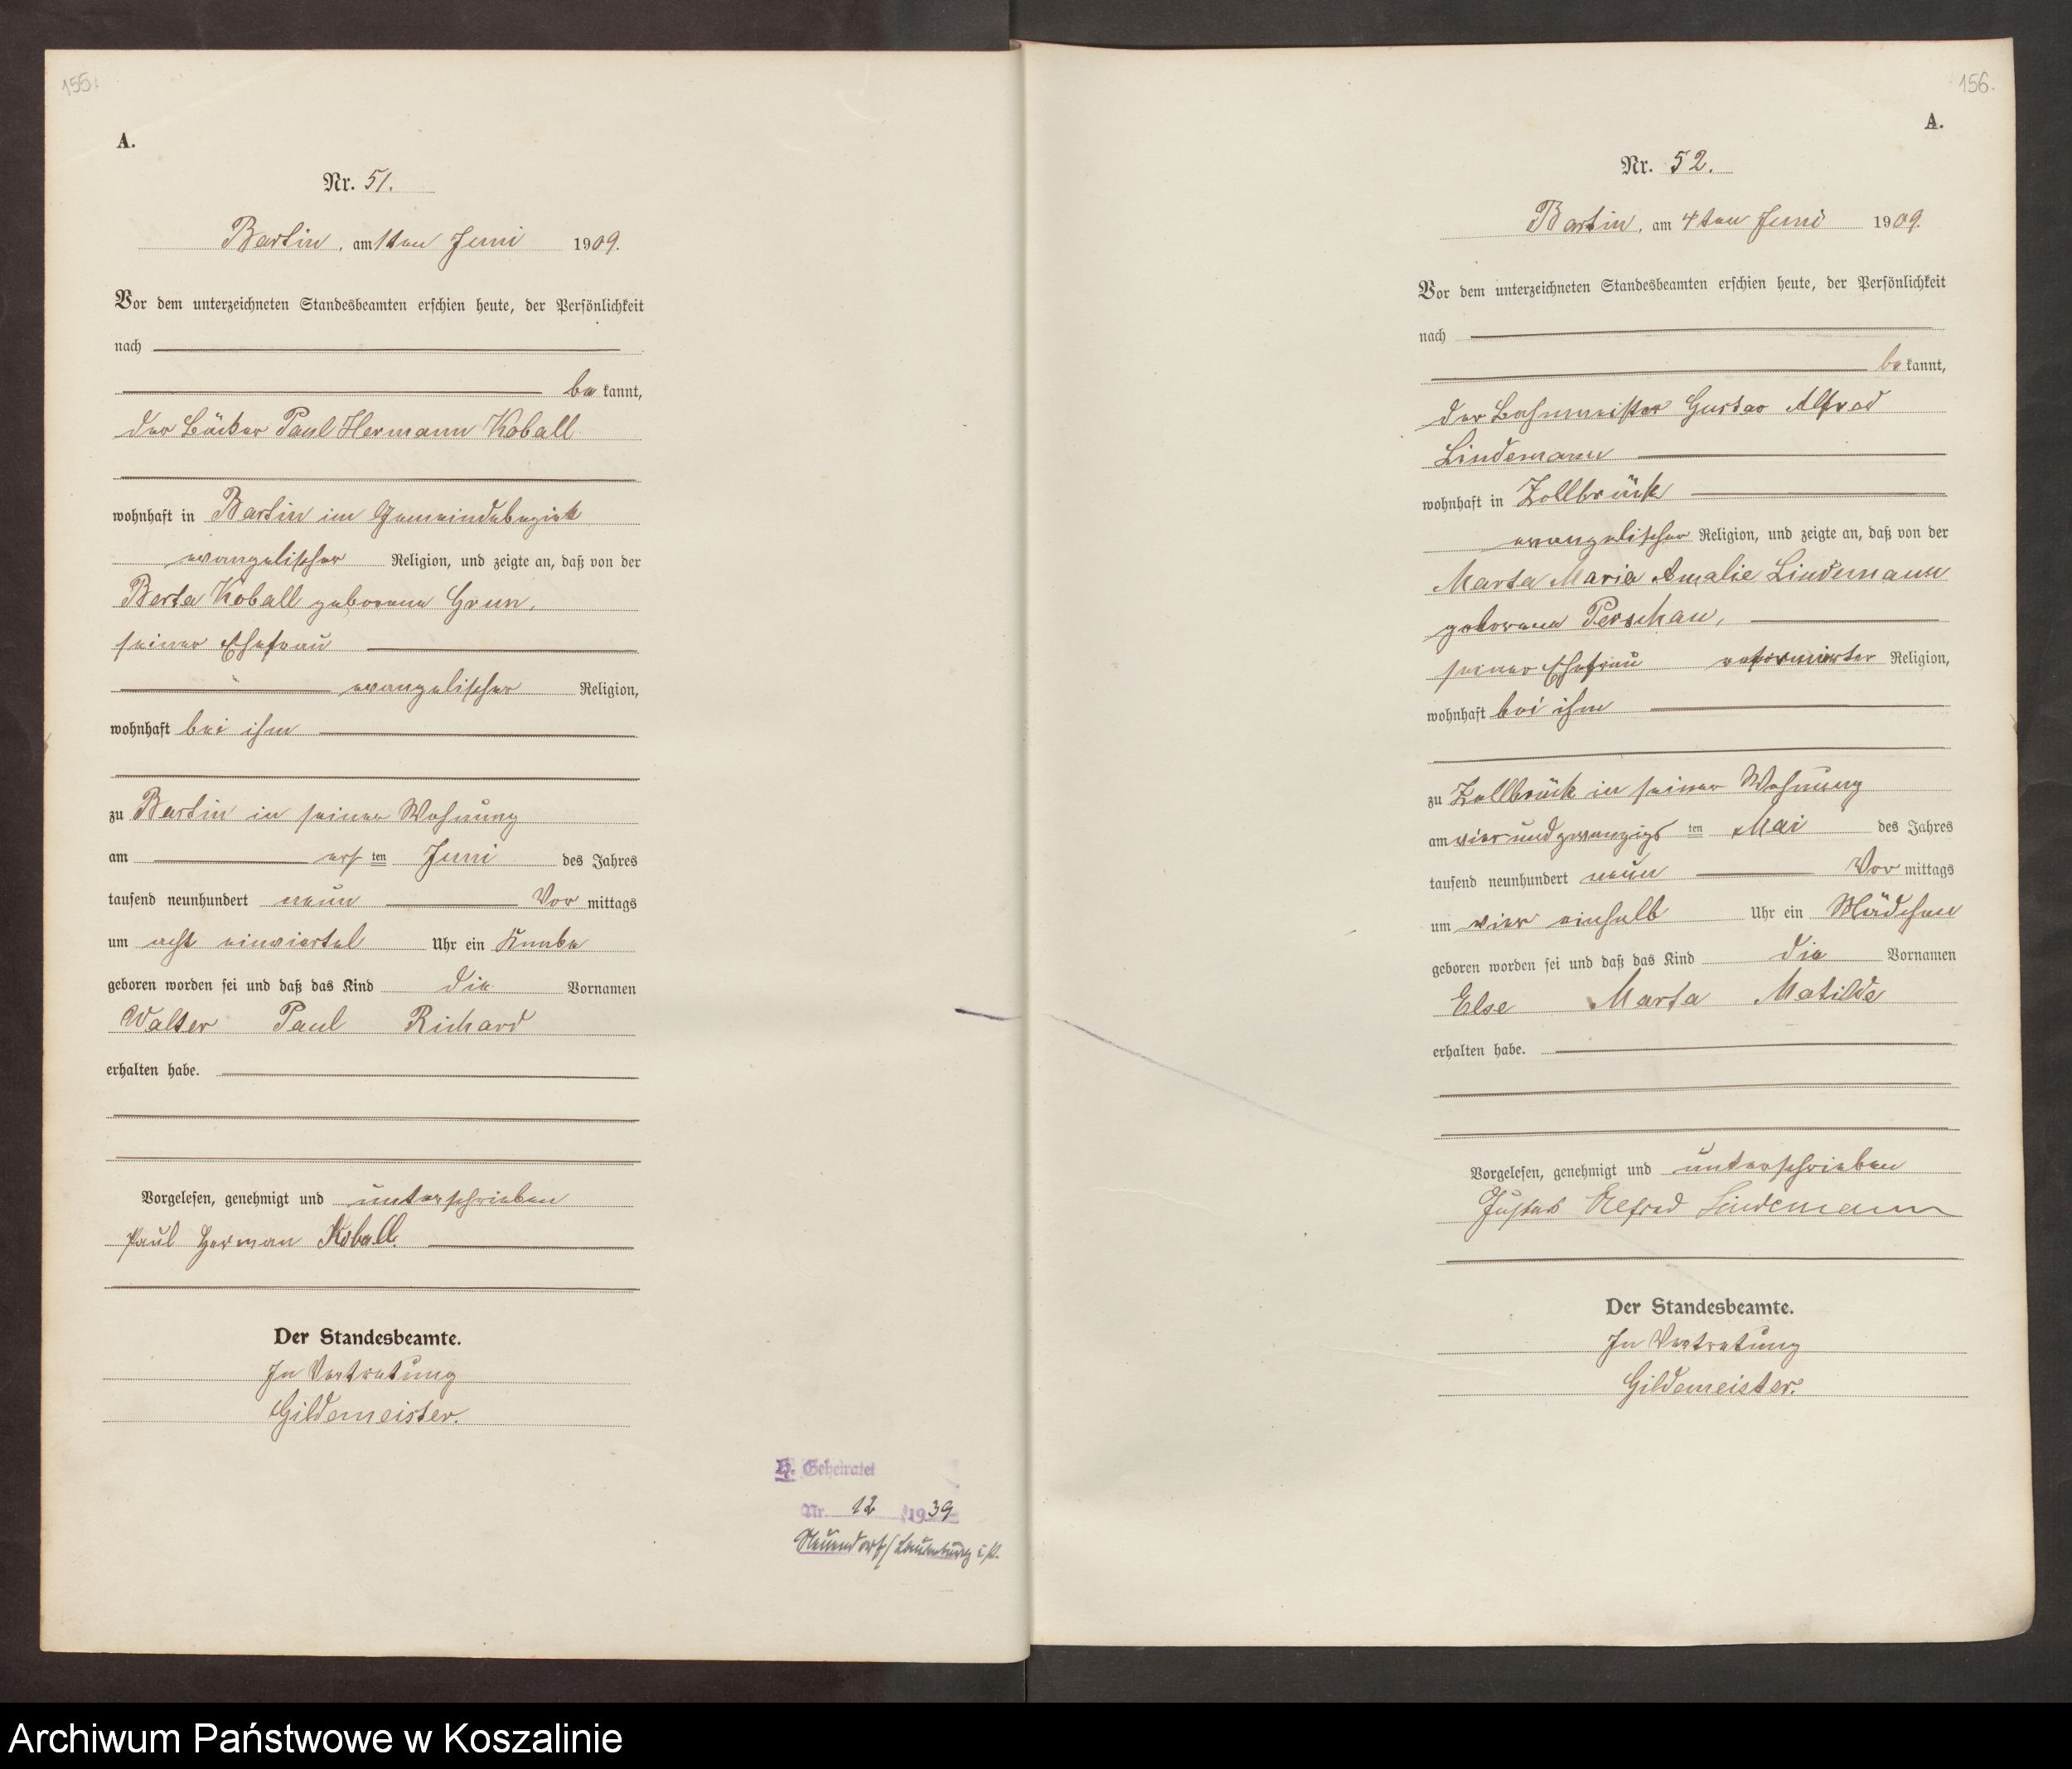 155.
A.
Nr. 51.
Bartin, am 1ten Juni 1909.
Vor dem unterzeichneten Standesbeamten erschien heute, der Persönlichkeit
nach
be kannt,
der Bäcker Paul Hermann Koball
wohnhaft in Bartin im Gemeindebezirk
evangelischer Religion, und zeigte an, daß von der
Berta Koball geborene Grun,
seiner Ehefrau
evangelischer Religion,
wohnhaft bei ihm
zu Bartin in seiner Wohnung
am ers ten Juni des Jahres
tausend neunhundert neun Vor mittags
um acht einviertel Uhr ein Knabe
geboren worden sei und daß das Kind die Vornamen
Walter Paul Richard
erhalten habe.
Vorgelesen, genehmigt und unterschrieben
Paul Herman Koball.
Der Standesbeamte.
In Vertretung
Gildemeister.
H. Geheiratet
Nr. 12 /1939
Neuendorf/Lauenburg i/P.
156.
A.
Nr. 52.
Bartin, am 4ten Juni 1909.
Vor dem unterzeichneten Standesbeamten erschien heute, der Persönlichkeit
nach
be kannt,
der Bahnmeister Gustav Alfred
Lindemann
wohnhaft in Zollbrück
evangelischer Religion, und zeigte an, daß von der
Marta Maria Amalie Lindemann
geborene Perschau,
seiner Ehefrau reformierter Religion,
wohnhaft bei ihm
zu Zollbrück in seiner Wohnung
am vierundzwanzigs ten Mai des Jahres
tausend neunhundert neun Vor mittags
um vier einhalb Uhr ein Mädchen
geboren worden sei und daß das Kind die Vornamen
Else Marta Matilde
erhalten habe.
Vorgelesen, genehmigt und unterschrieben
Gustav Alfred Lindemann
Der Standesbeamte.
In Vertretung
Gildemeister.
Archiwum Państwowe w Koszalinie